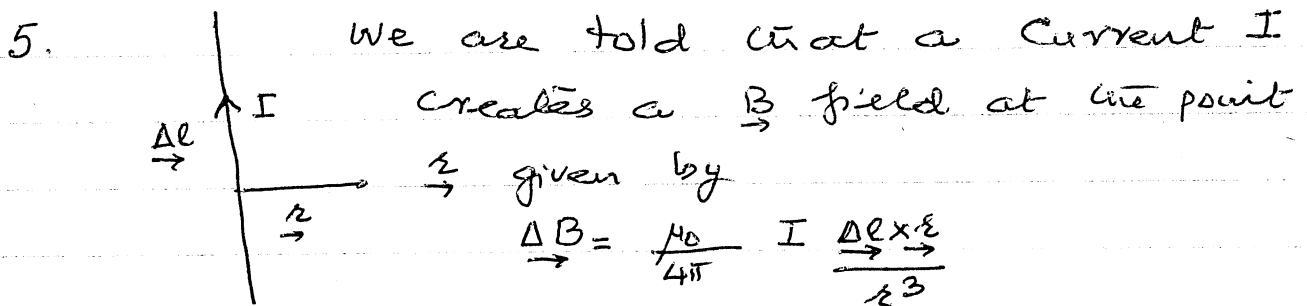 5. We are told that a Current I
I creates a B→ field at the point
Δl→
r→ r→ given by
ΔB→ = μ₀/4π I Δl→ × r→ / r³